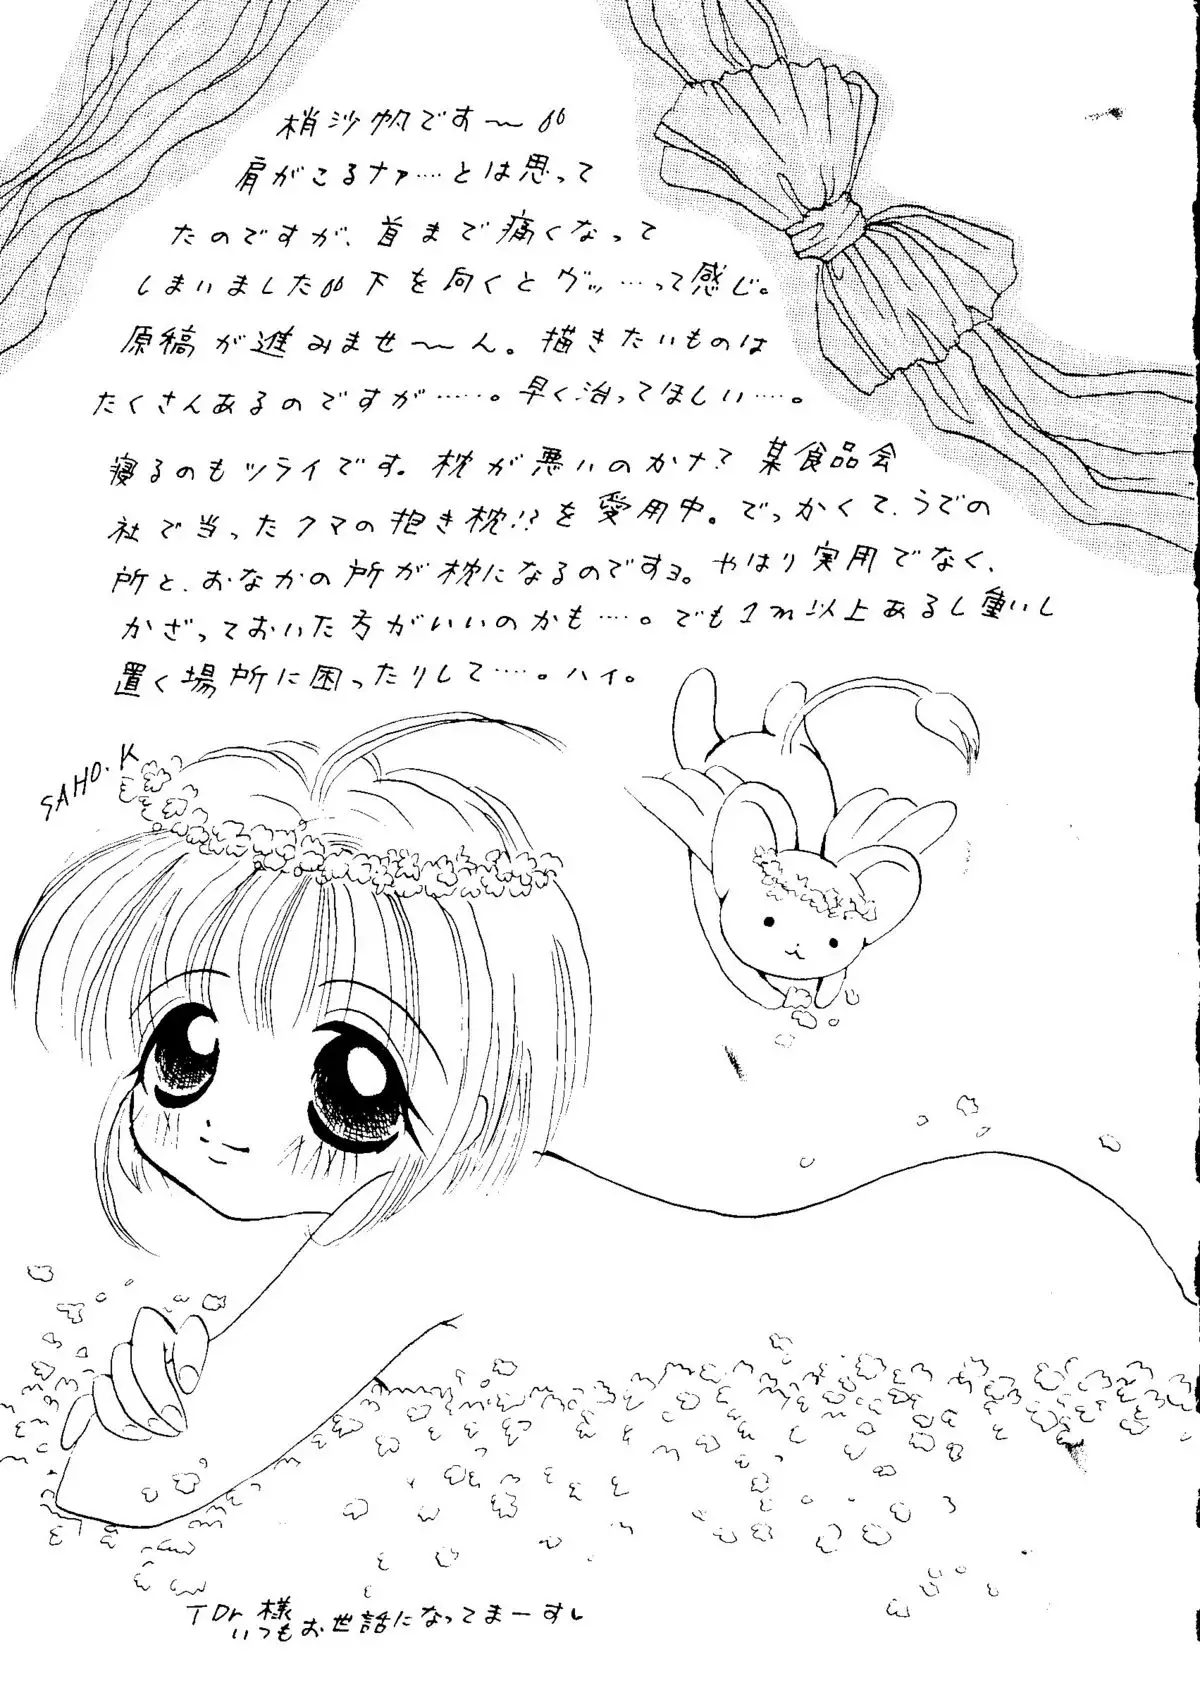 梢沙帆です〜
肩がこるナァ…とは思って
たのですが、首まで痛くなって
しまいました 下を向くとヴッ…って感じ。
原稿が進みませ〜ん。描きたいものは
たくさんあるのですが……。早く治ってほしい…。
寝るのもツライです。枕が悪いのかナ? 某食品会
社で当ったクマの抱き枕!?を愛用中。でっかくて、うでの
所と、おなかの所が枕になるのですョ。やはり実用でなく、
かざっておいた方がいいのかも…。でも1m以上あるし重いし
置く場所に困ったりして…。ハイ。
SAHO.K
TDr様
いつもお世話になってまーす